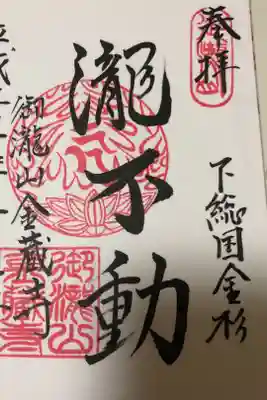 奉拝
下総国金杉
瀧不動
御瀧山金蔵寺
平成
御瀧山